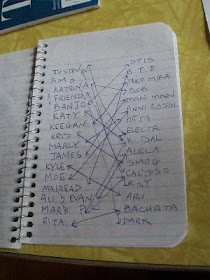 JUSTIN
AM
KATRINA
FRIEND
BANJO
KATY
KEEGAN
KRIS
MARLY
JAMES
KYLE
MOE
MAIREAD
ALI & EVAN
MARK P
RITA
OTIS
B.T.D.
MEO MIKA
BOB
MAN MAN
BETA
ELECTA
K DAL
ALELA
SMOG
CALYPSO
ARI
BACHATA
DARK